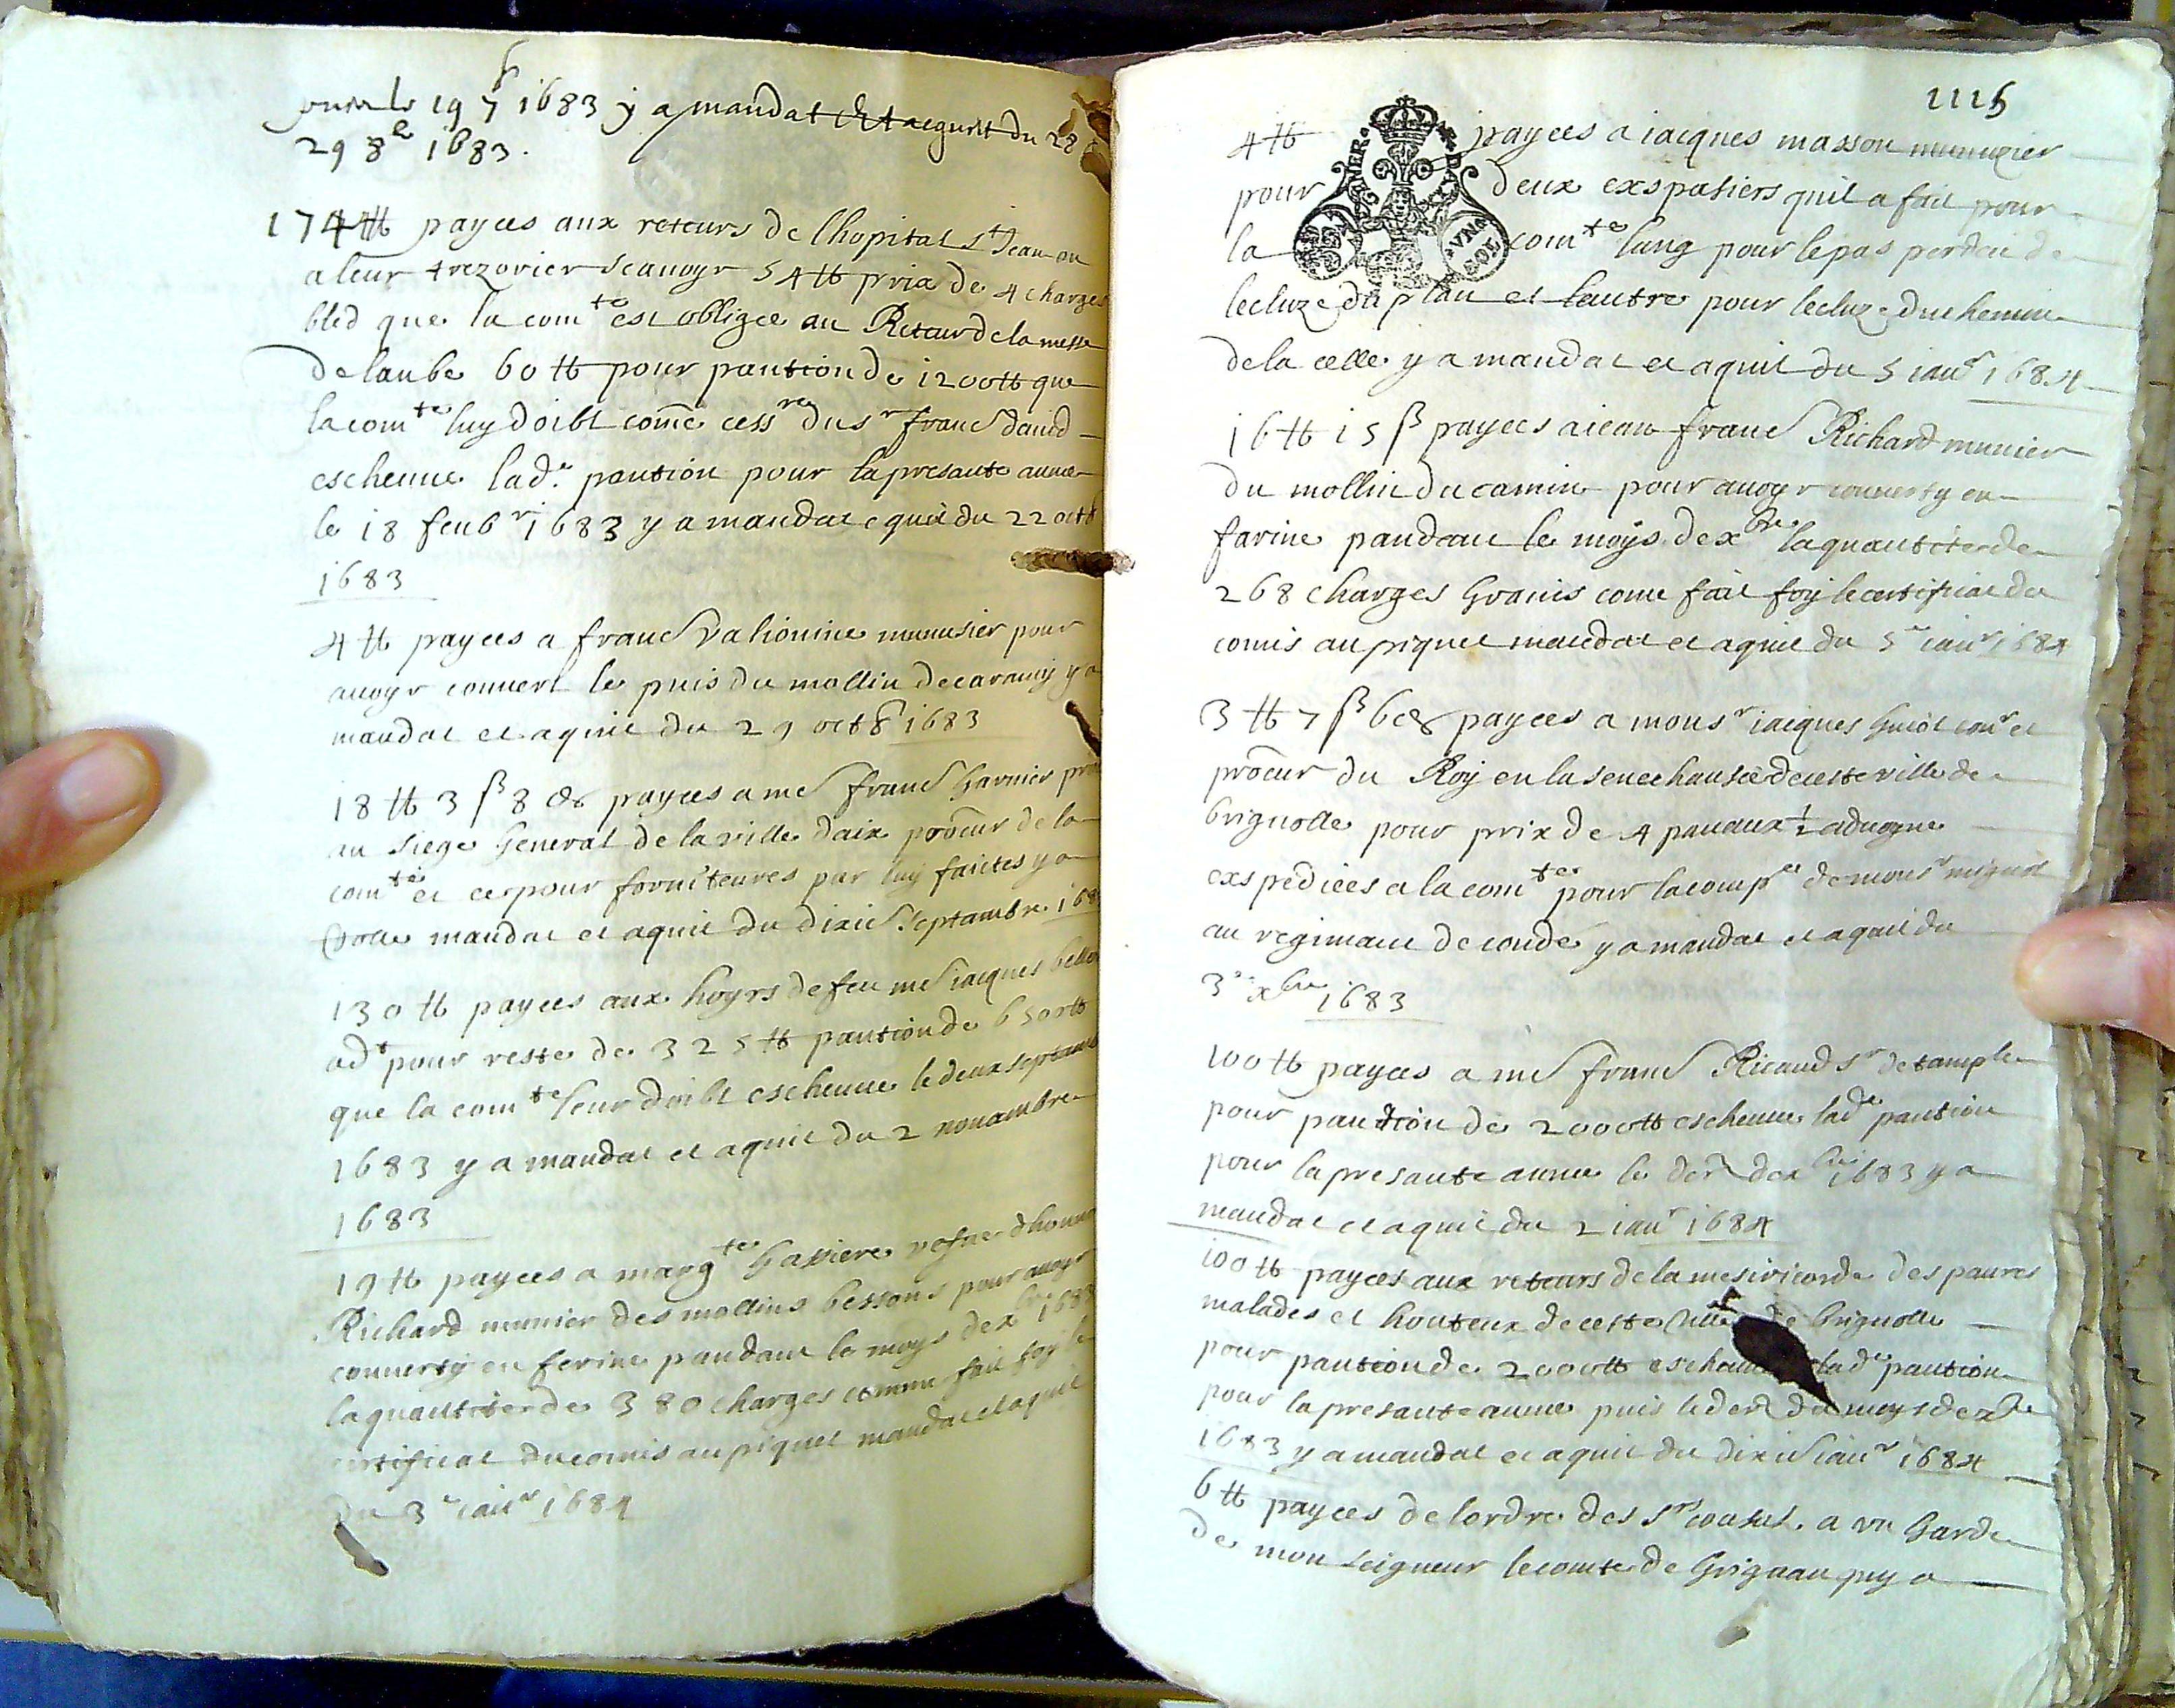 19 7b 1683 y a mandat et acquit du 28
29 8e 1683.
174 tt payees aux reteurs de lhopital st Jean ou
a leur trezorier scauoyr 54 tt prix de 4 charges
bled que la comte est obligee au Reteur de la messe
de laube 60 tt pour pantion de 1200 tt que
la comte luy doibt come cessre du sr franc david
escheue lade pantion pour la presante annee
le 18 feubr 1683 y a mandat equit du 22 octb
1683
4 tt payees a franc valionine munusier pour
auoyr couuert le puis du mollin de caramy y a
mandat et aquit du 29 octb 1683
18 tt 3 ß 8 d payees a me franc Garnier pro
au siege General de la ville daix procur de la
comte et ce pour forniteures par luy faictes y a
mandat et aquit du dixie septambre 168
130 tt payees aux hoyrs de feu me iacques
adt pour reste de 325 tt pantion de 6500 tt
que la comte leur doibt escheue le deux septamb
1683 y a mandat et aquit du 2 nouambre
1683
19 tt payees a margte Gassiere vefue dhonno
Richard munier des mollins bessons pour auoyr
conuerty en ferine pandant le moys dexbre 1683
la quantite de 380 charges comme fait foy le
certificat du comis au piquet mandat et aquit
du 3e ianr 1684
1115
4 tt payees a iacques masson munuzier
GNER. DAY
VN SOL
pour deux exspasiers quil a fait pour
la comte lung pour le pas perdeu de
lecluze du plan et lautre pour lecluze du chemin
de la celle y a mandat et aquit du 5 ianr 1684
16 tt 15 ß payees a iean franc Richard munier
du mollin du camin pour auoyr conuerty en
farine pandant le moys dexbre la quantite de
268 charges Grains come fait foy le certificat du
comis au piquet mandat et aquit du 5e ianr 1684
3 tt 7 ß 6 d payees a monsr iacques Guiot conr et
procur du Roy en la senechausee de ceste ville de
brignolle pour prix de 4 panaux ½ aduoyne
exspediees a la comte pour la compe de monsr
au regimant de condé y a mandat et aquit du
3e xbre 1683
100 tt payees a me franc Ricaud sr de tample
pour pantion de 2000 tt escheue lade pantion
pour la presante annee le der dexbre 1683 y a
mandat et aquit du 2 ianr 1684
100 tt payees aux reteurs de la mesiricorde des paures
malades et honteux de ceste ville de brignolle
pour pantion de 2000 tt lade pantion
pour la presante annee puis le der du moys dexbre
1683 y a mandat et aquit du dixie ianr 1684
6 tt payees de lordre des srs consuls a vn Garde
de mon seigneur le comte de Grignan quy a